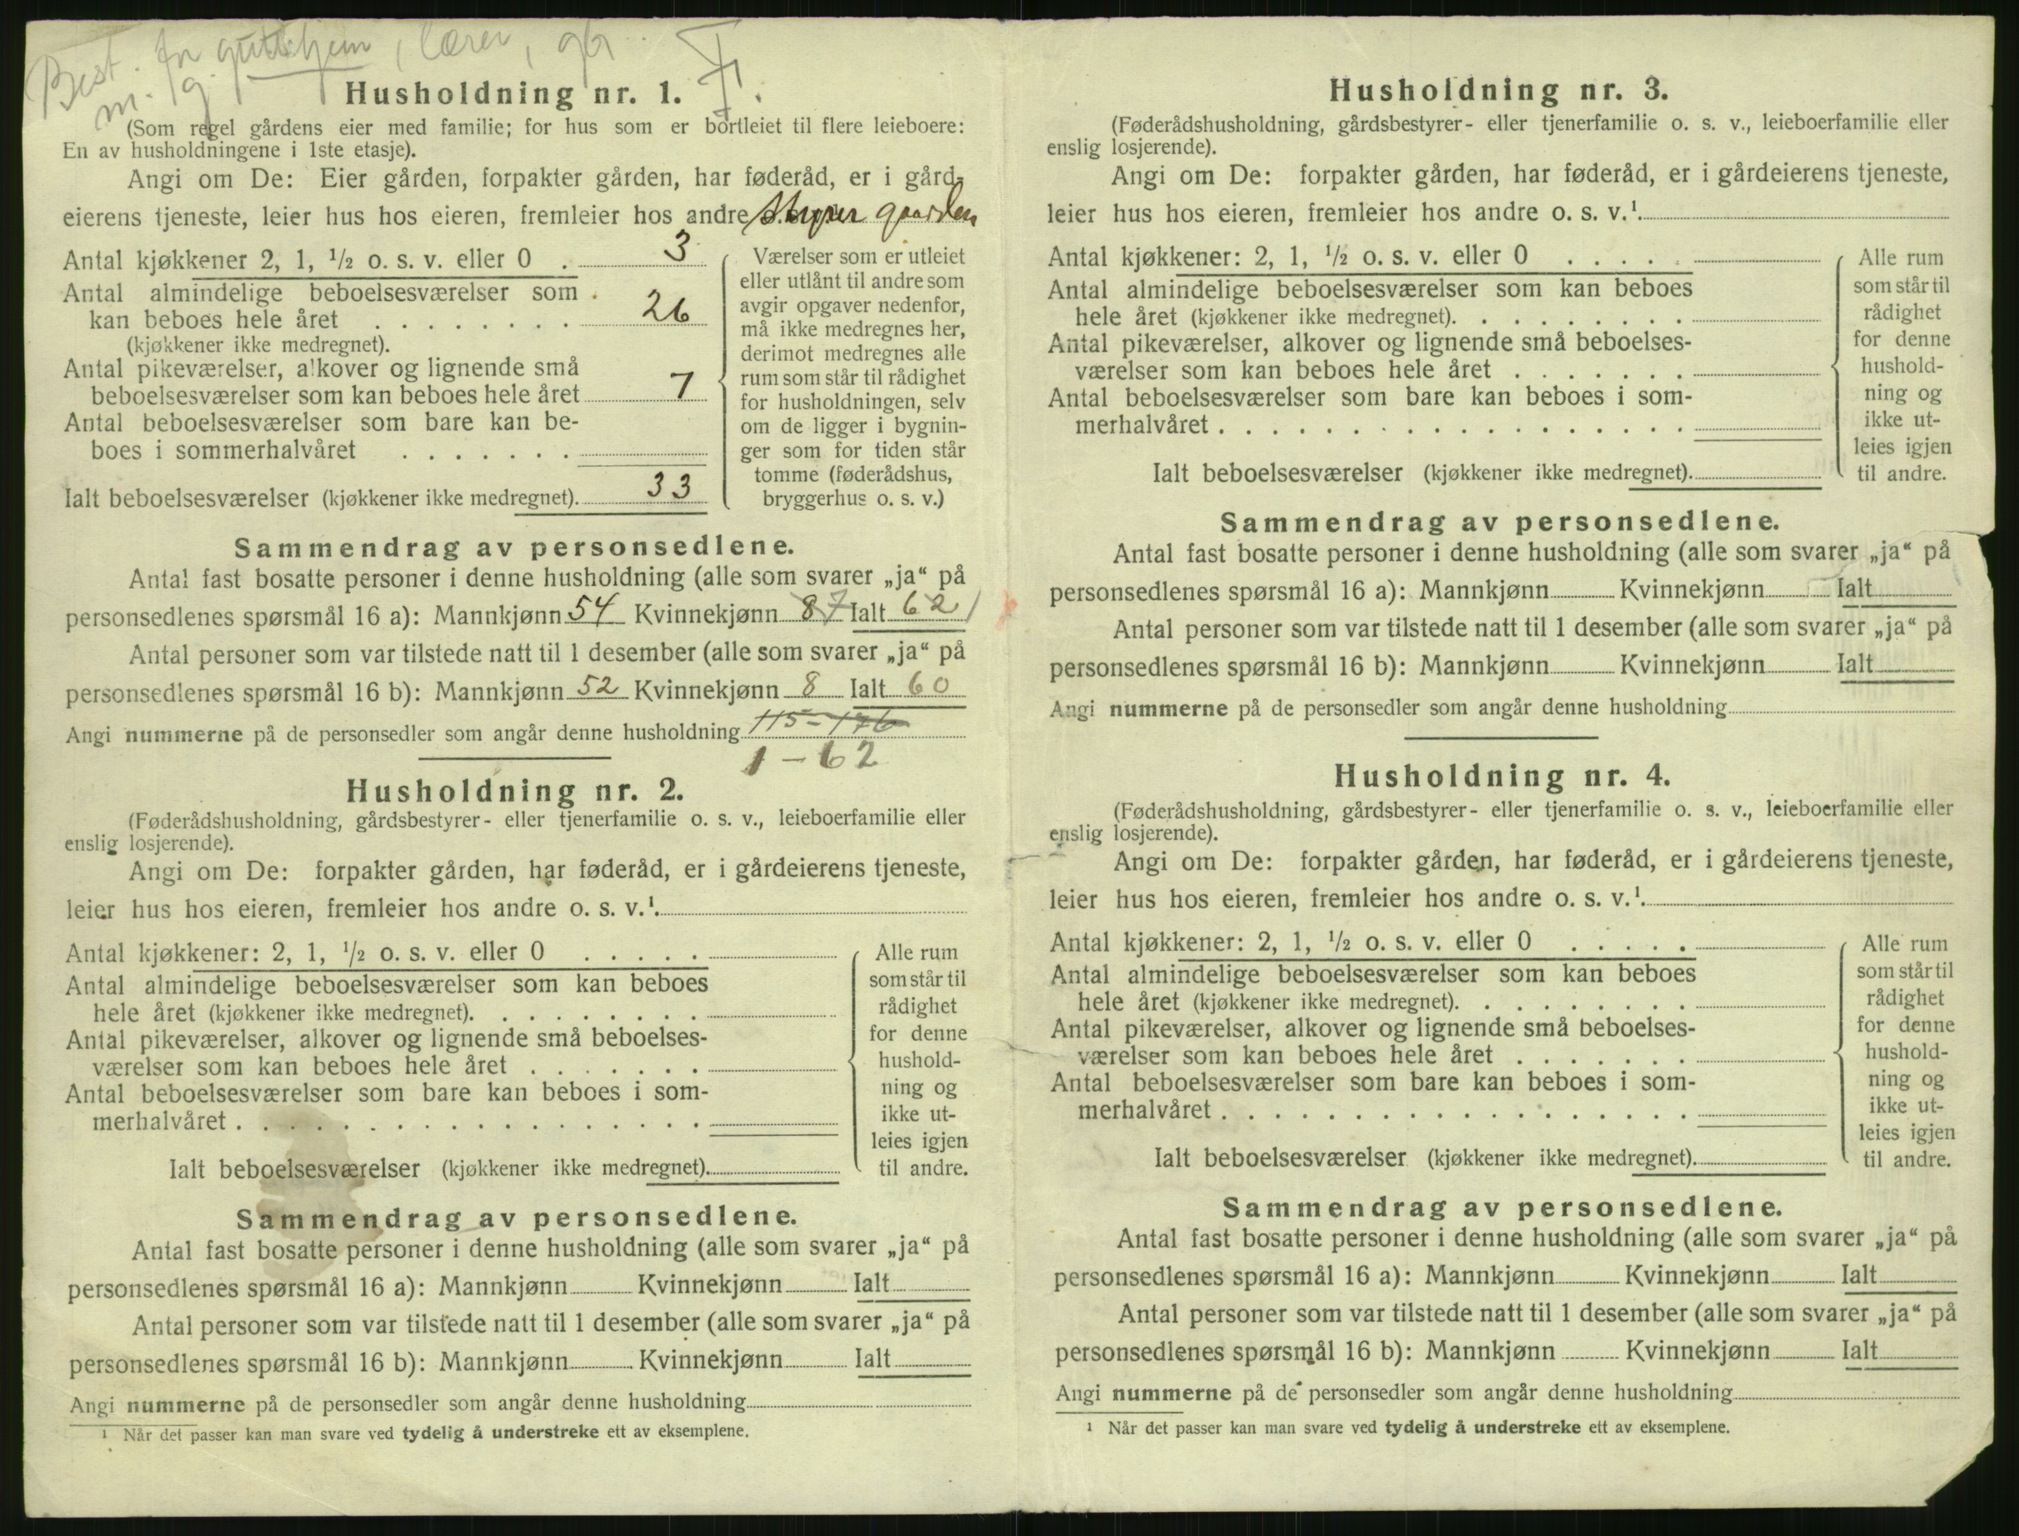 Best. for guttehjem, lærer, gbr. F.
m. g.
Husholdning nr. 1.
(Som regel gårdens eier med familie; for hus som er bortleiet til flere leieboere:
En av husholdningene i 1ste etasje).
Angi om De: Eier gården, forpakter gården, har føderåd, er i gård-
eierens tjeneste, leier hus hos eieren, fremleier hos andre styrer gaarden
Antal kjøkkener 2, 1, ½ o. s. v. eller 0 . 3
Antal almindelige beboelsesværelser som
kan beboes hele året . . . . . . . . 26
(kjøkkener ikke medregnet).
Antal pikeværelser, alkover og lignende små
beboelsesværelser som kan beboes hele året 7
Antal beboelsesværelser som bare kan be-
boes i sommerhalvåret . . . . . . .
Ialt beboelsesværelser (kjøkkener ikke medregnet). 33
Værelser som er utleiet
eller utlånt til andre som
avgir opgaver nedenfor,
må ikke medregnes her,
derimot medregnes alle
rum som står til rådighet
for husholdningen, selv
om de ligger i bygnin-
ger som for tiden står
tomme (føderådshus,
bryggerhus o. s. v.)
Sammendrag av personsedlene.
Antal fast bosatte personer i denne husholdning (alle som svarer „ja“ på
personsedlenes spørsmål 16 a): Mannkjønn 54 Kvinnekjønn 8 7 Ialt 62 1
Antal personer som var tilstede natt til 1 desember (alle som svarer „ja“ på
personsedlenes spørsmål 16 b): Mannkjønn 52 Kvinnekjønn 8 Ialt 60
Angi nummerne på de personsedler som angår denne husholdning 115-176
1 - 62
Husholdning nr. 2.
(Føderådshusholdning, gårdsbestyrer- eller tjenerfamilie o. s. v., leieboerfamilie eller
enslig losjerende).
Angi om De: forpakter gården, har føderåd, er i gårdeierens tjeneste,
leier hus hos eieren, fremleier hos andre o. s. v.¹.
Antal kjøkkener: 2, 1, ½ o. s. v. eller 0 . . . . .
Antal almindelige beboelsesværelser som kan beboes
hele året (kjøkkener ikke medregnet). . . . . . . . .
Antal pikeværelser, alkover og lignende små beboelses-
værelser som kan beboes hele året . . . . . . .
Antal beboelsesværelser som bare kan beboes i som-
merhalvåret . . . . . . . . . . . . . . . . . .
Ialt beboelsesværelser (kjøkkener ikke medregnet).
Alle rum
som står til
rådighet
for denne
hushold-
ning og
ikke ut-
leies igjen
til andre.
Sammendrag av personsedlene.
Antal fast bosatte personer i denne husholdning (alle som svarer „ja“ på
personsedlenes spørsmål 16 a): Mannkjønn Kvinnekjønn Ialt
Antal personer som var tilstede natt til 1 desember (alle som svarer „ja“ på
personsedlenes spørsmål 16 b): Mannkjønn Kvinnekjønn Ialt
Angi nummerne på de personsedler som angår denne husholdning
¹ Når det passer kan man svare ved tydelig å understreke ett av eksemplene.
Husholdning nr. 3.
(Føderådshusholdning, gårdsbestyrer- eller tjenerfamilie o. s. v., leieboerfamilie eller
enslig losjerende).
Angi om De: forpakter gården, har føderåd, er i gårdeierens tjeneste,
leier hus hos eieren, fremleier hos andre o. s. v.¹.
Antal kjøkkener: 2, 1, ½ o. s. v. eller 0 . . . . .
Antal almindelige beboelsesværelser som kan beboes
hele året (kjøkkener ikke medregnet). . . . . . . . .
Antal pikeværelser, alkover og lignende små beboelses-
værelser som kan beboes hele året . . . . . . .
Antal beboelsesværelser som bare kan beboes i som-
merhalvåret . . . . . . . . . . . . . . . . . .
Ialt beboelsesværelser (kjøkkener ikke medregnet).
Alle rum
som står til
rådighet
for denne
hushold-
ning og
ikke ut-
leies igjen
til andre.
Sammendrag av personsedlene.
Antal fast bosatte personer i denne husholdning (alle som svarer „ja“ på
personsedlenes spørsmål 16 a): Mannkjønn Kvinnekjønn Ialt
Antal personer som var tilstede natt til 1 desember (alle som svarer „ja“ på
personsedlenes spørsmål 16 b): Mannkjønn Kvinnekjønn Ialt
Angi nummerne på de personsedler som angår denne husholdning
Husholdning nr. 4.
(Føderådshusholdning, gårdsbestyrer- eller tjenerfamilie o. s. v., leieboerfamilie eller
enslig losjerende).
Angi om De: forpakter gården, har føderåd, er i gårdeierens tjeneste,
leier hus hos eieren, fremleier hos andre o. s. v.¹.
Antal kjøkkener: 2, 1, ½ o. s. v. eller 0 . . . . .
Antal almindelige beboelsesværelser som kan beboes
hele året (kjøkkener ikke medregnet). . . . . . . . .
Antal pikeværelser, alkover og lignende små beboelses-
værelser som kan beboes hele året . . . . . . .
Antal beboelsesværelser som bare kan beboes i som-
merhalvåret . . . . . . . . . . . . . . . . . .
Ialt beboelsesværelser (kjøkkener ikke medregnet).
Alle rum
som står til
rådighet
for denne
hushold-
ning og
ikke ut-
leies igjen
til andre.
Sammendrag av personsedlene.
Antal fast bosatte personer i denne husholdning (alle som svarer „ja“ på
personsedlenes spørsmål 16 a): Mannkjønn Kvinnekjønn Ialt
Antal personer som var tilstede natt til 1 desember (alle som svarer „ja“ på
personsedlenes spørsmål 16 b): Mannkjønn Kvinnekjønn Ialt
Angi nummerne på de personsedler som angår denne husholdning
¹ Når det passer kan man svare ved tydelig å understreke ett av eksemplene.